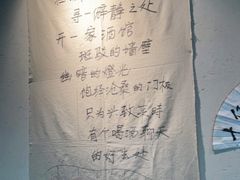 寻一僻静之处
开一家酒馆
斑驳的墙壁
幽暗的燈光
饱经沧桑的门板
只为兴致来时
有个喝酒聊天
的好去处